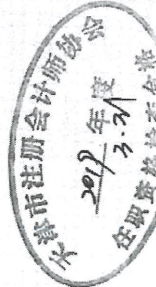 天津市注册会计师协会
2019年度
3.31
任职资格检查合格